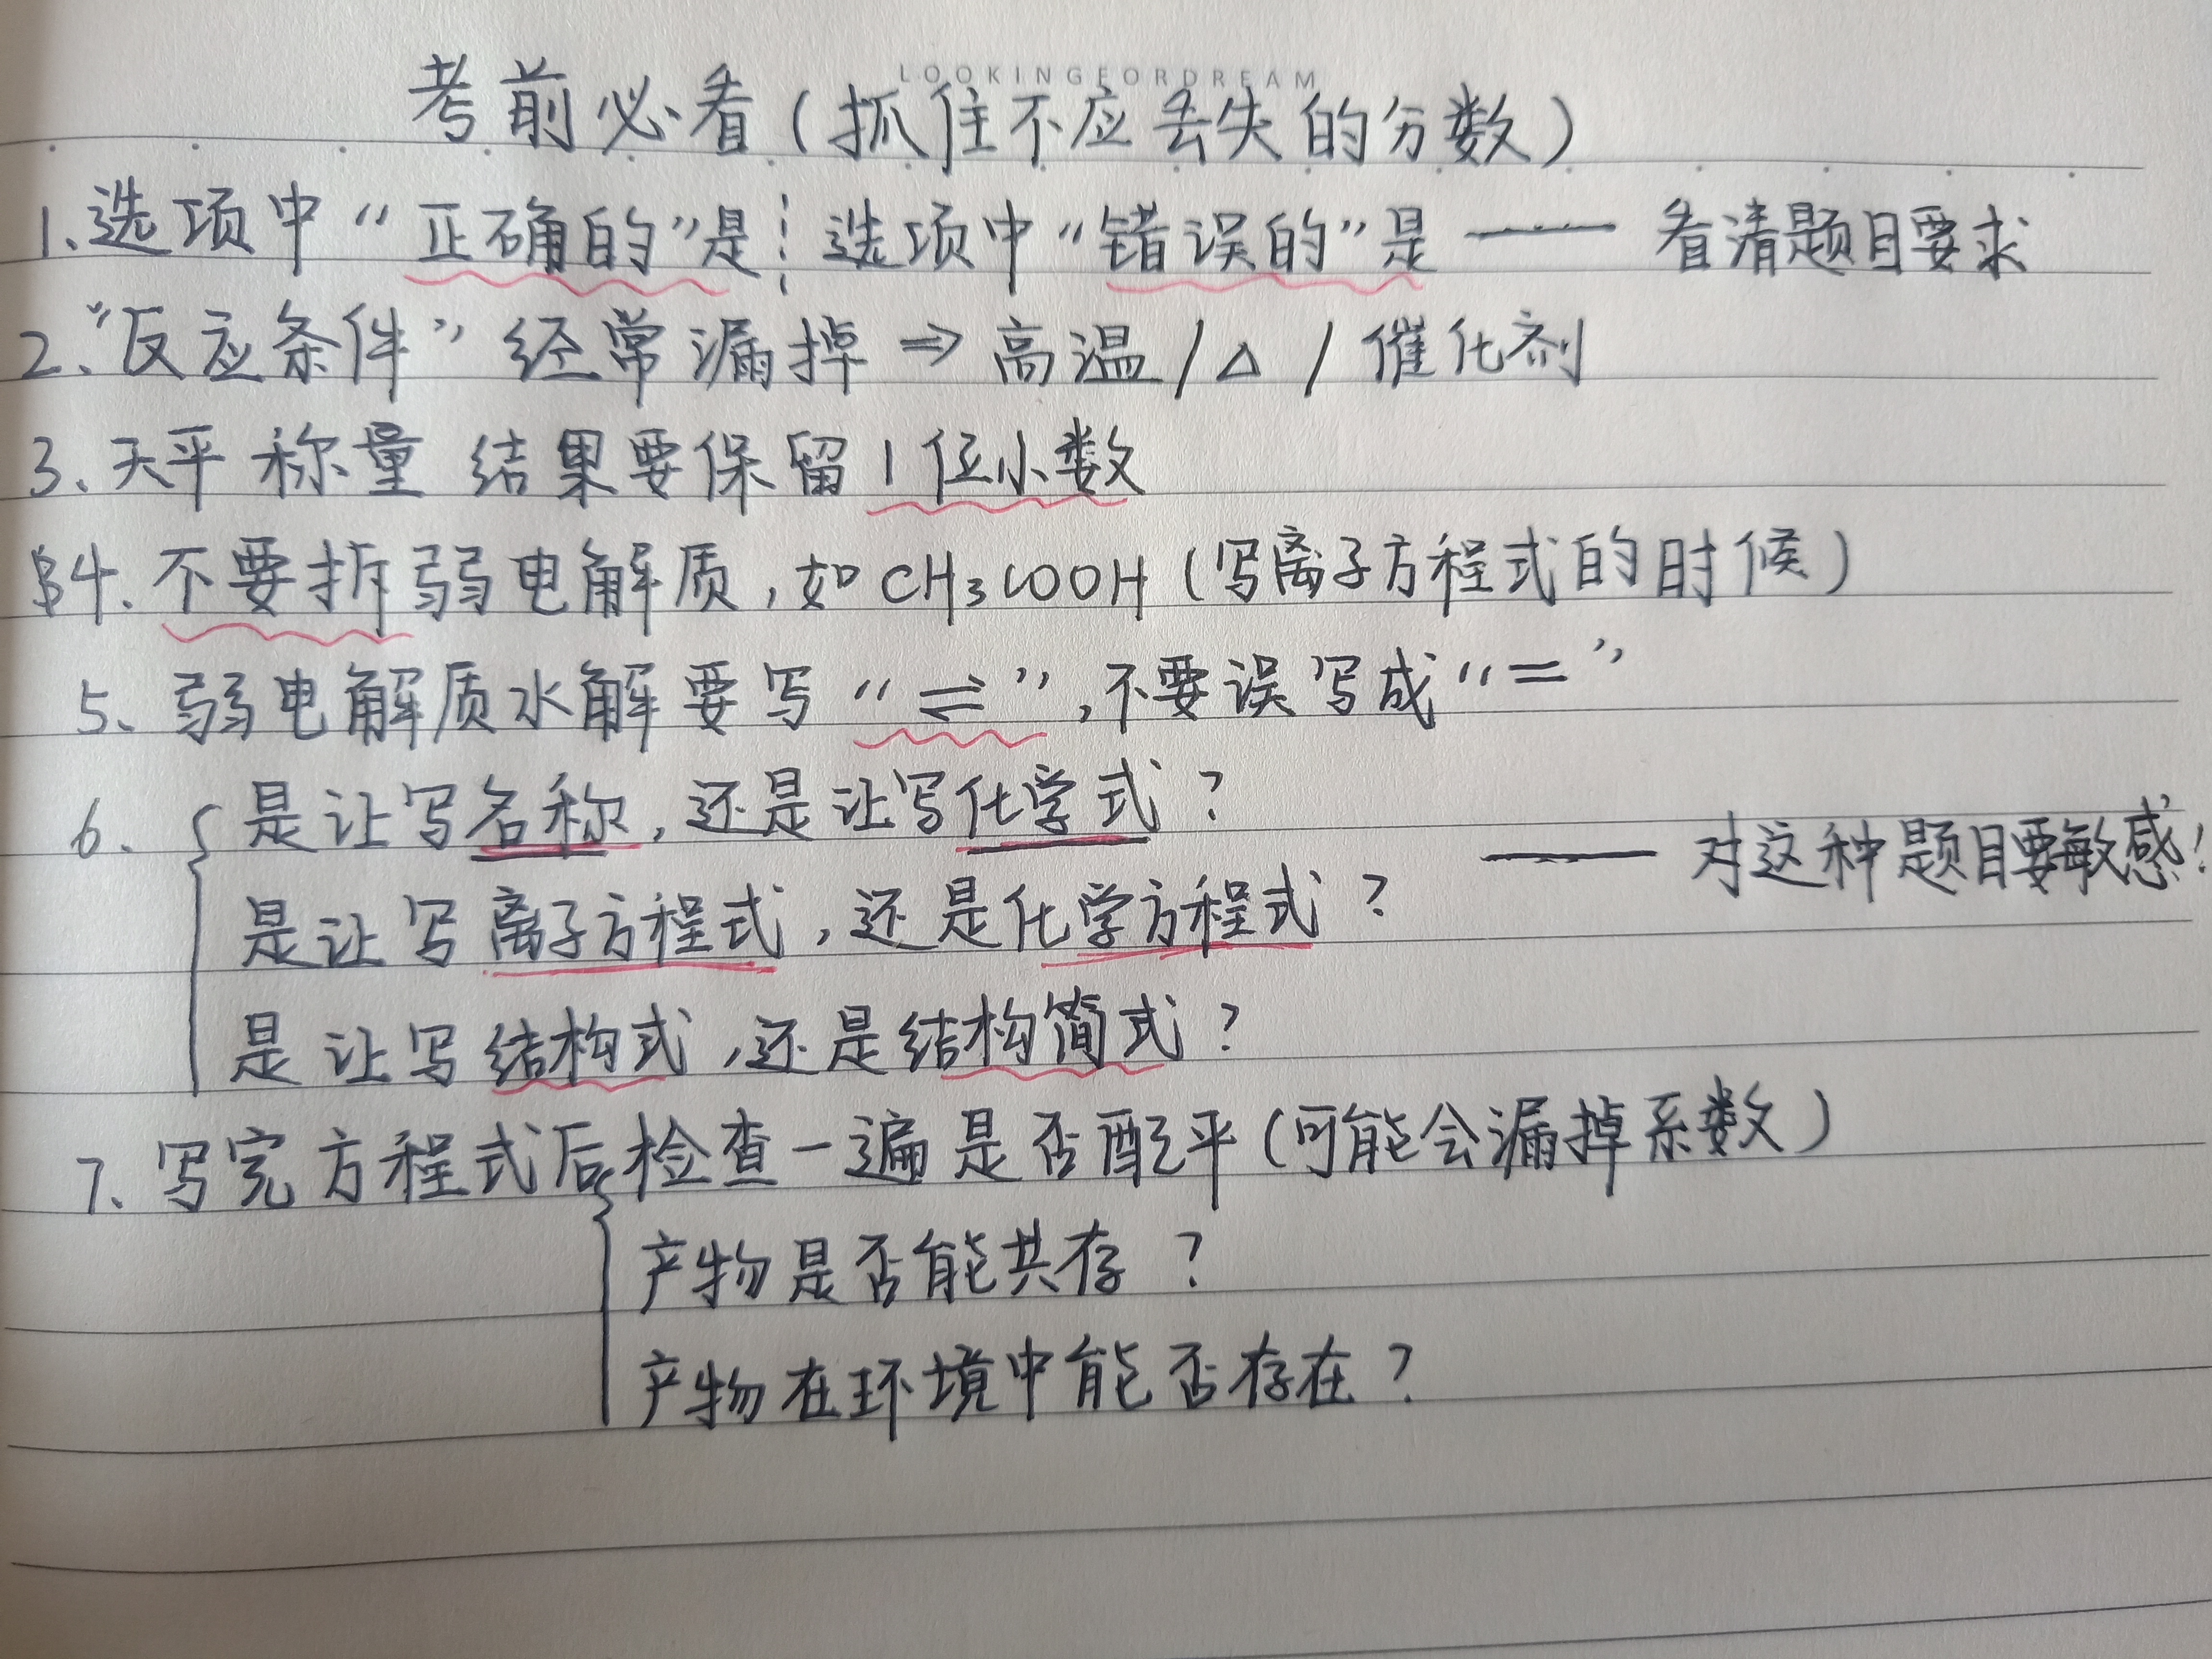 LOOKINGFORDREAM
考前必看(抓住不应丢失的分数)
1、选项中“正确的”是┆选项中“错误的”是 —— 看清题目要求
2、“反应条件”经常漏掉 ⇒ 高温/△/催化剂
3、天平称量 结果要保留1位小数
4、不要拆弱电解质,如CH₃COOH(写离子方程式的时候)
5、弱电解质水解要写“⇌”,不要误写成“=”
6、{是让写名称,还是让写化学式?
是让写离子方程式,还是化学方程式? —— 对这种题目要敏感!
是让写结构式,还是结构简式?
7、写完方程式后{检查一遍是否配平(可能会漏掉系数)
产物是否能共存?
产物在环境中能否存在?